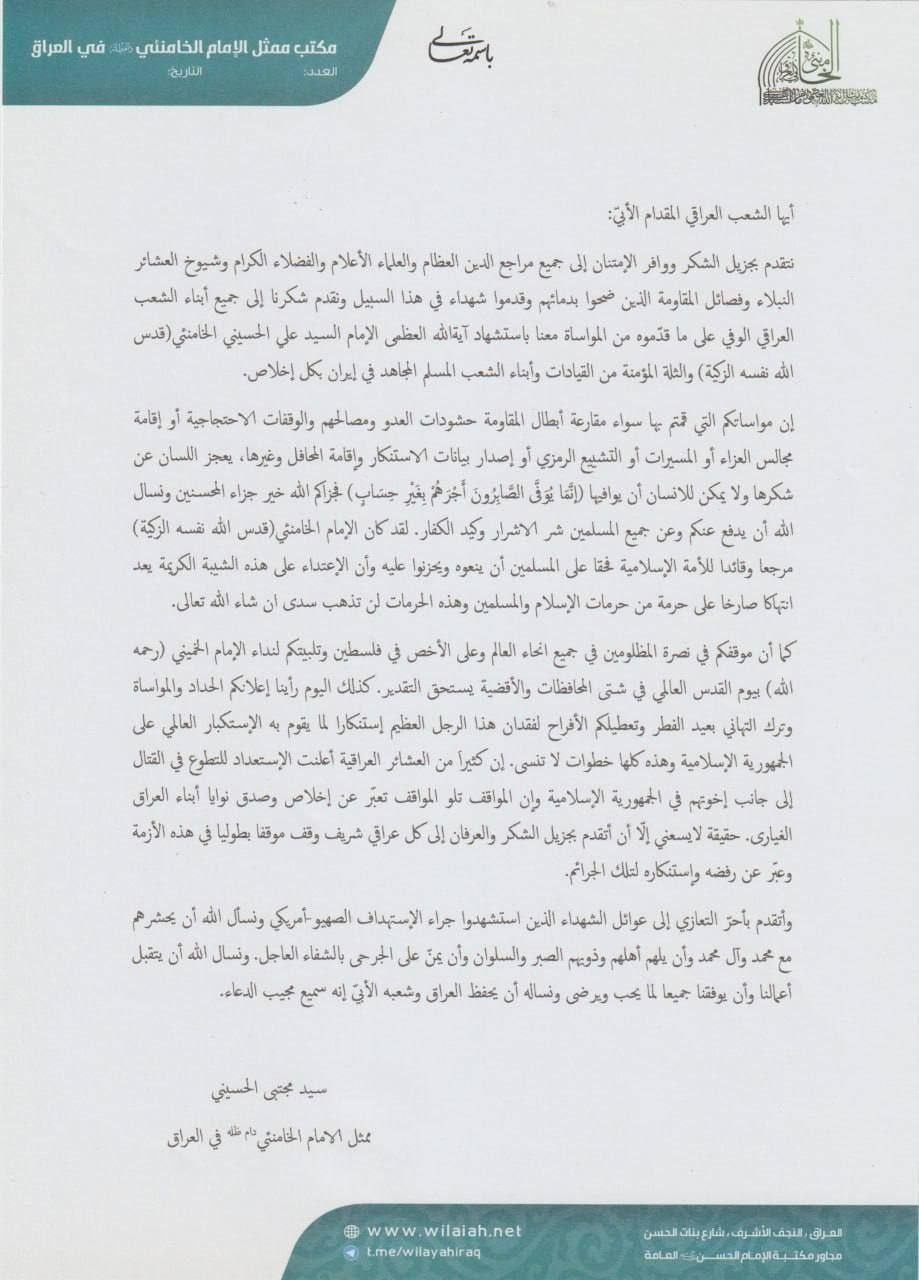 مكتب ممثل الإمام الخامنئي في العراق
العدد:
التاريخ:
باسمه تعالى
الخامنئي
أيها الشعب العراقي المقدام الأبيّ:
نتقدم بجزيل الشكر ووافر الإمتنان إلى جميع مراجع الدين العظام والعلماء الأعلام والفضلاء الكرام وشيوخ العشائر
النبلاء وفصائل المقاومة الذين ضحوا بدمائهم وقدموا شهداء في هذا السبيل ونقدم شكرنا إلى جميع أبناء الشعب
العراقي الوفي على ما قدّموه من المواساة معنا باستشهاد آيةالله العظمى الإمام السيد علي الحسيني الخامنئي(قدس
الله نفسه الزكية) والثلة المؤمنة من القيادات وأبناء الشعب المسلم المجاهد في إيران بكل إخلاص.
إن مواساتكم التي قمتم بها سواء مقارعة أبطال المقاومة حشودات العدو ومصالحهم والوقفات الاحتجاجية أو إقامة
مجالس العزاء أو المسيرات أو التشييع الرمزي أو إصدار بيانات الاستنكار وإقامة المحافل وغيرها، يعجز اللسان عن
شكرها ولا يمكن للانسان أن يوافيها (إِنَّمَا يُوَفَّى الصَّابِرُونَ أَجْرَهُمْ بِغَيْرِ حِسَابٍ) فجزاكم الله خير جزاء المحسنين ونسال
الله أن يدفع عنكم وعن جميع المسلمين شر الاشرار وكيد الكفار. لقد كان الإمام الخامنئي(قدس الله نفسه الزكية)
مرجعا وقائدا للأمة الإسلامية فحقا على المسلمين أن ينعوه ويحزنوا عليه وأن الإعتداء على هذه الشيبة الكريمة يعد
انتهاكا صارخا على حرمة من حرمات الإسلام والمسلمين وهذه الحرمات لن تذهب سدى ان شاء الله تعالى.
كما أن موقفكم في نصرة المظلومين في جميع انحاء العالم وعلى الأخص في فلسطين وتلبيتكم لنداء الإمام الخميني (رحمه
الله) بيوم القدس العالمي في شتى المحافظات والأقضية يستحق التقدير. كذلك اليوم رأينا إعلانكم الحداد والمواساة
وترك التهاني بعيد الفطر وتعطيلكم الأفراح لفقدان هذا الرجل العظيم إستنكارا لما يقوم به الإستكبار العالمي على
الجمهورية الإسلامية وهذه كلها خطوات لا تنسى. إن كثيراً من العشائر العراقية أعلنت الإستعداد للتطوع في القتال
إلى جانب إخوتهم في الجمهورية الإسلامية وإن المواقف تلو المواقف تعبّر عن إخلاص وصدق نوايا أبناء العراق
الغيارى. حقيقة لايسعني إلّا أن أتقدم بجزيل الشكر والعرفان إلى كل عراقي شريف وقف موقفا بطوليا في هذه الأزمة
وعبّر عن رفضه وإستنكاره لتلك الجرائم.
وأتقدم بأحرّ التعازي إلى عوائل الشهداء الذين استشهدوا جراء الإستهداف الصهيو-أمريكي ونسأل الله أن يحشرهم
مع محمد وآل محمد وأن يلهم أهلهم وذويهم الصبر والسلوان وأن يمنّ على الجرحى بالشفاء العاجل. ونسال الله أن يتقبل
أعمالنا وأن يوفقنا جميعا لما يحب ويرضى ونساله أن يحفظ العراق وشعبه الأبيّ إنه سميع مجيب الدعاء.
سيد مجتبى الحسيني
ممثل الامام الخامنئي دام ظله في العراق
العراق ، النجف الأشرف ، شارع بنات الحسن
مجاور مكتبة الإمام الحسن العامة
www.wilaiah.net
t.me/wilayahiraq